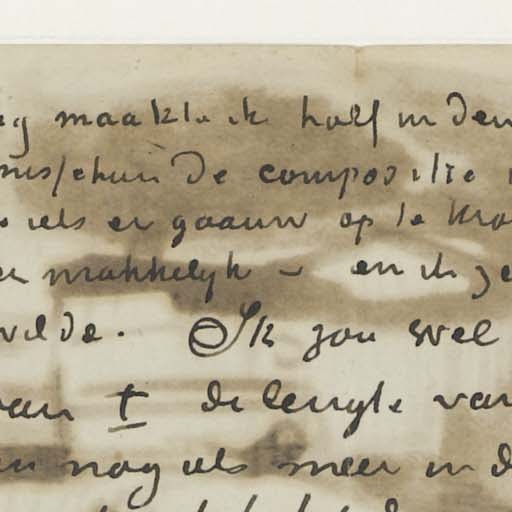 maakte ik half in den
misschien de compositie
iets er gaauw op te kra
makkelyk – en ik ge
wilde. Ik zou wel
van ± de lengte van
nog iets meer in d